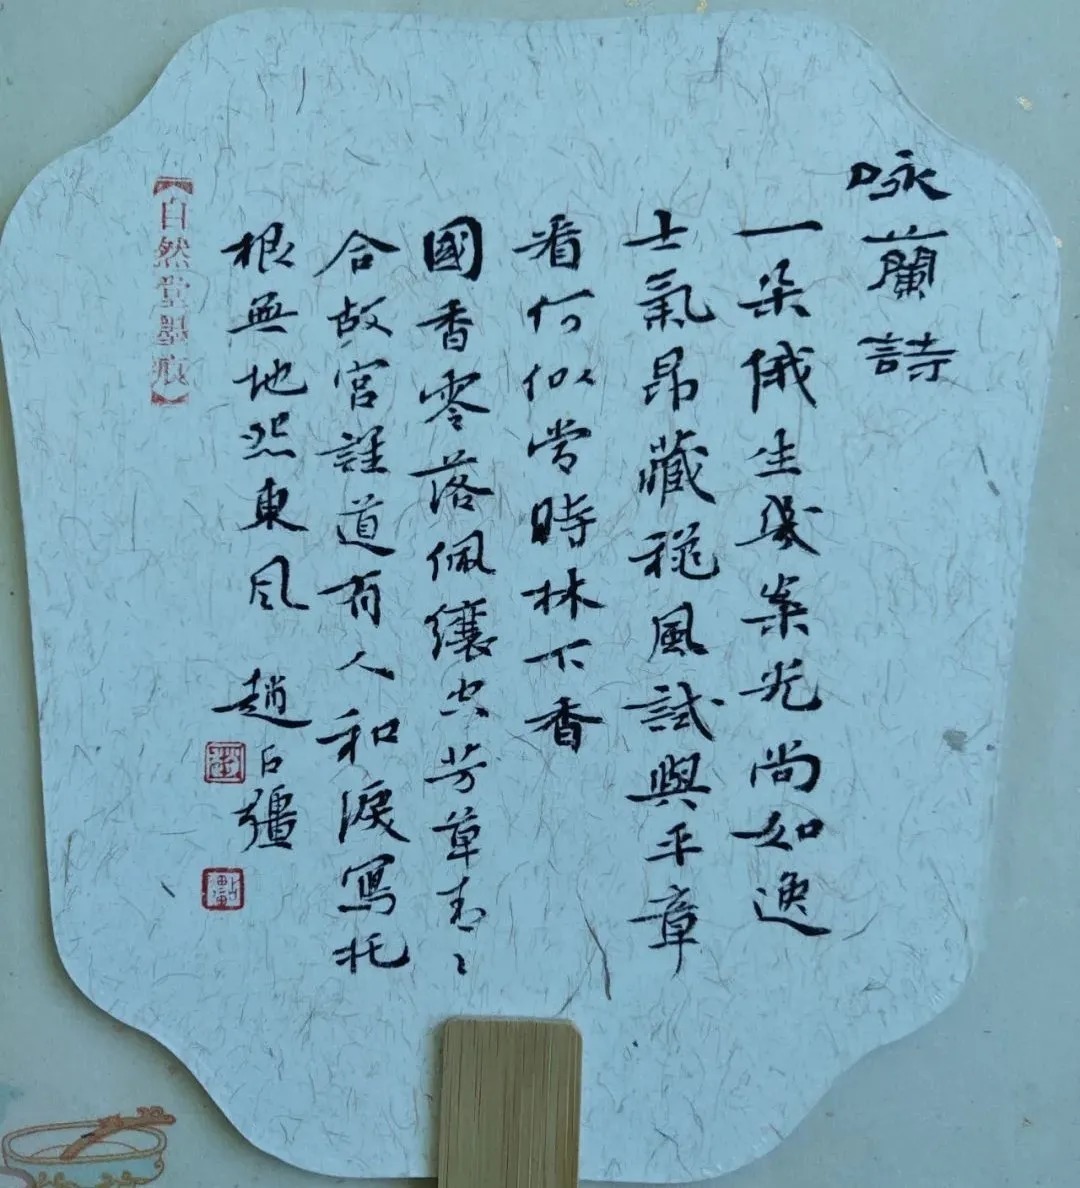 咏蘭詩
一朵俄生幾案光尚如逸
士氣昂藏穐風試與平章
看何似當時林下香
國香零落佩纕空芳草青〻
合故宮誰道有人和淚寫托
根無地怨東風 趙石疆
【自然堂墨痕】